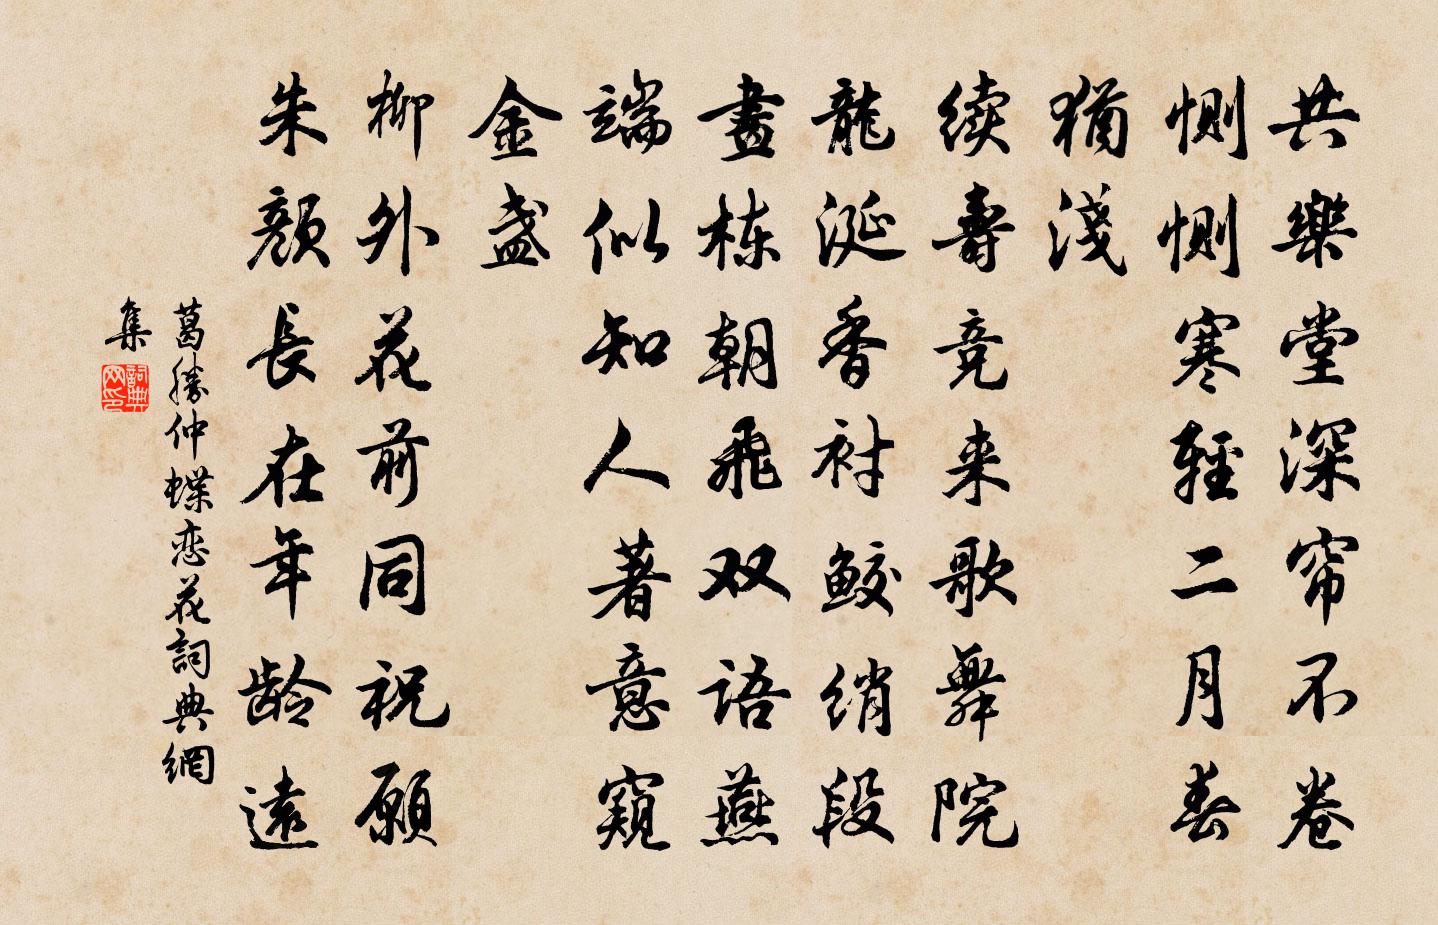 共樂堂深帘不卷
恻恻寒轻二月春
猶淺
续壽竞来歌舞院
龍涎香衬鲛绡段
畫栋朝飛双语燕
端似知人著意窥
金盏
柳外花前同祝願
朱颜長在年龄遠
葛勝仲蝶恋花詞典網
集
詞典
网印